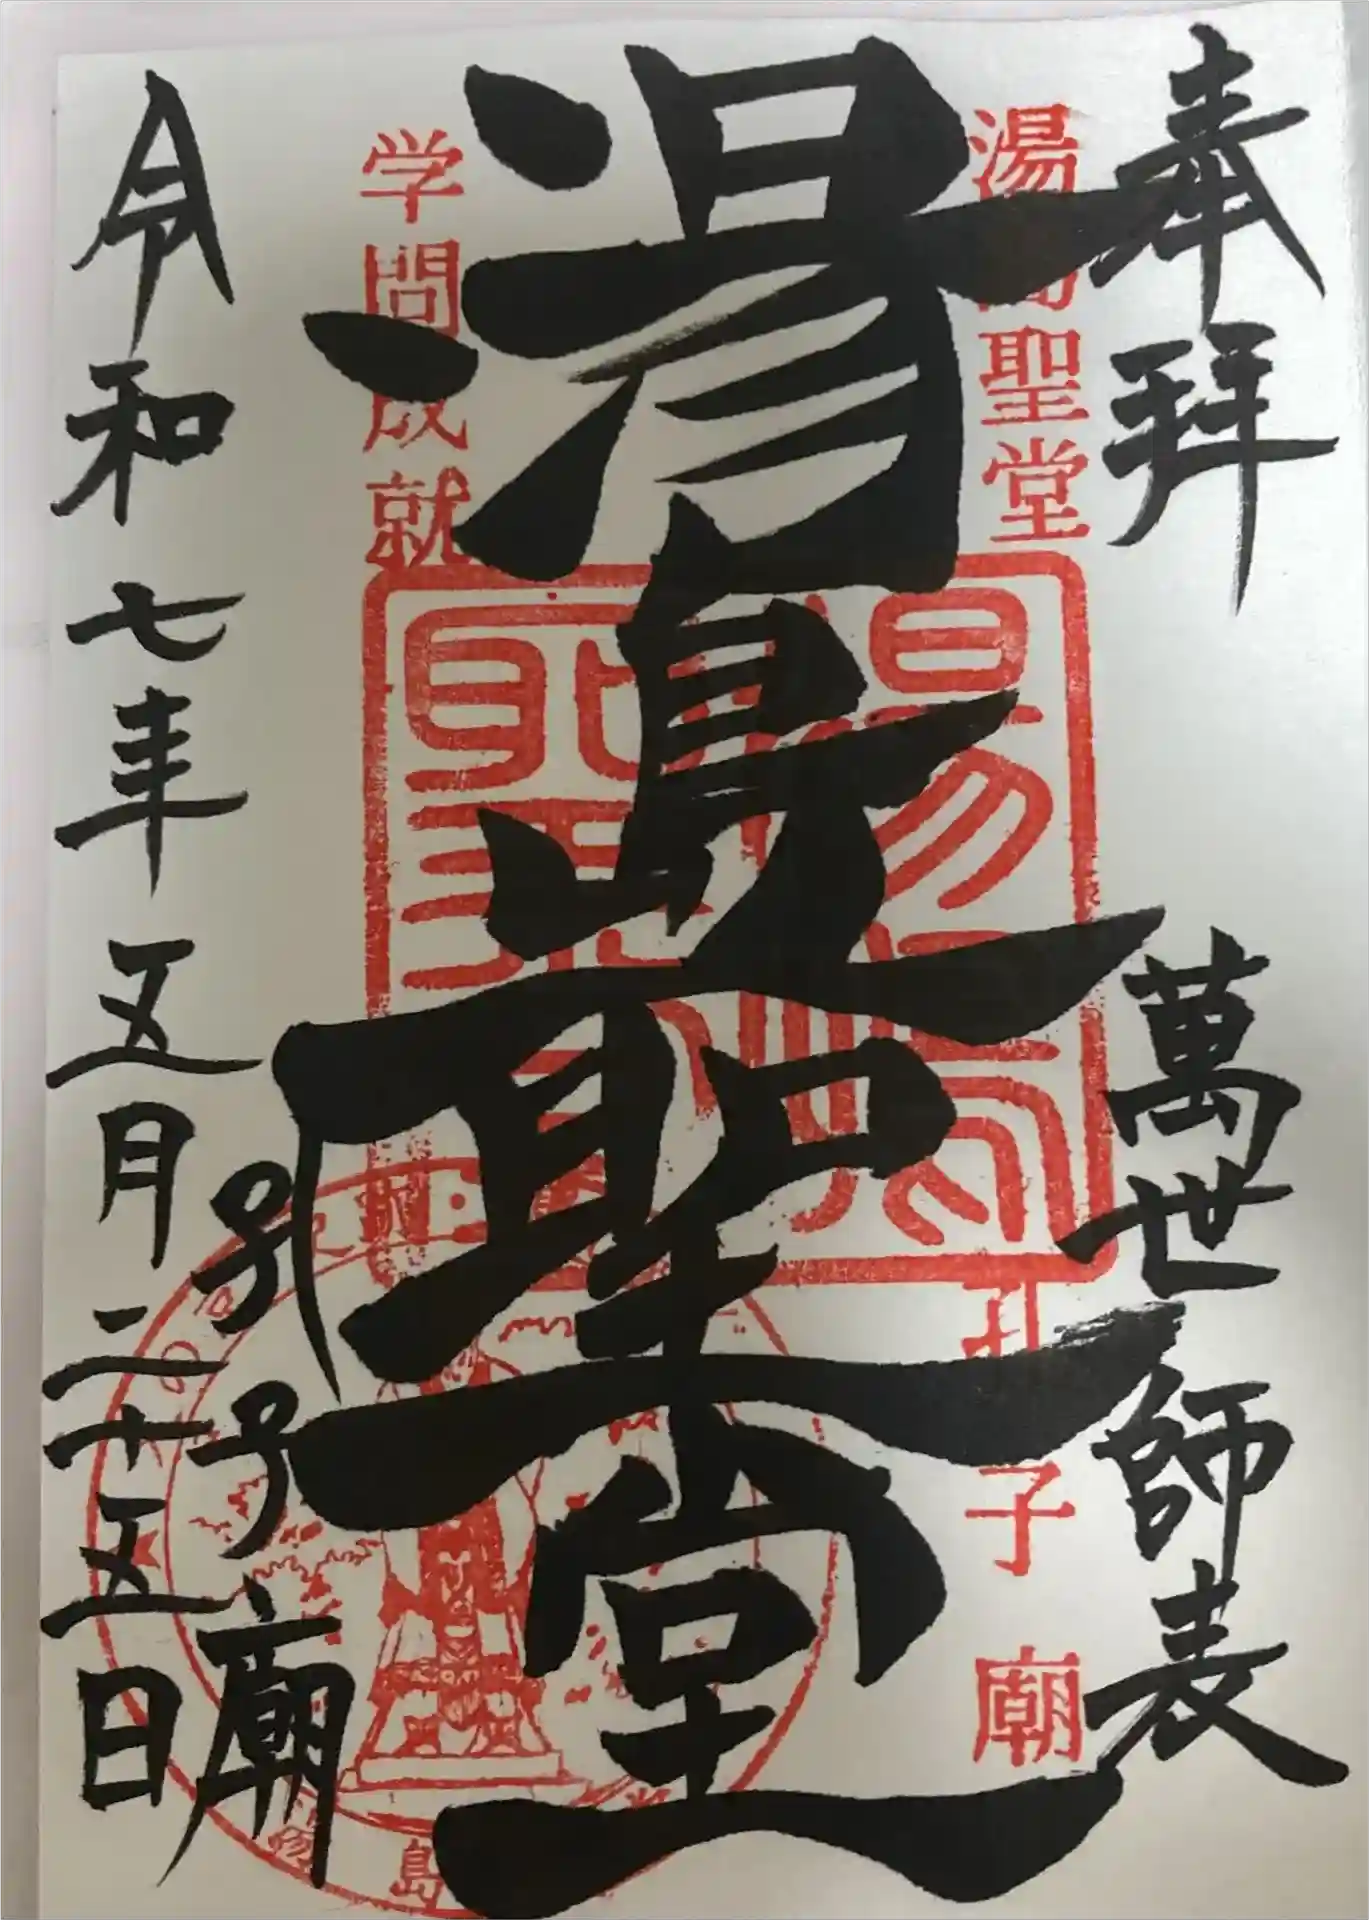 奉拝
萬世師表
湯島聖堂
孔子廟
湯島聖堂
孔子廟
学問成就
令和七年五月二十五日